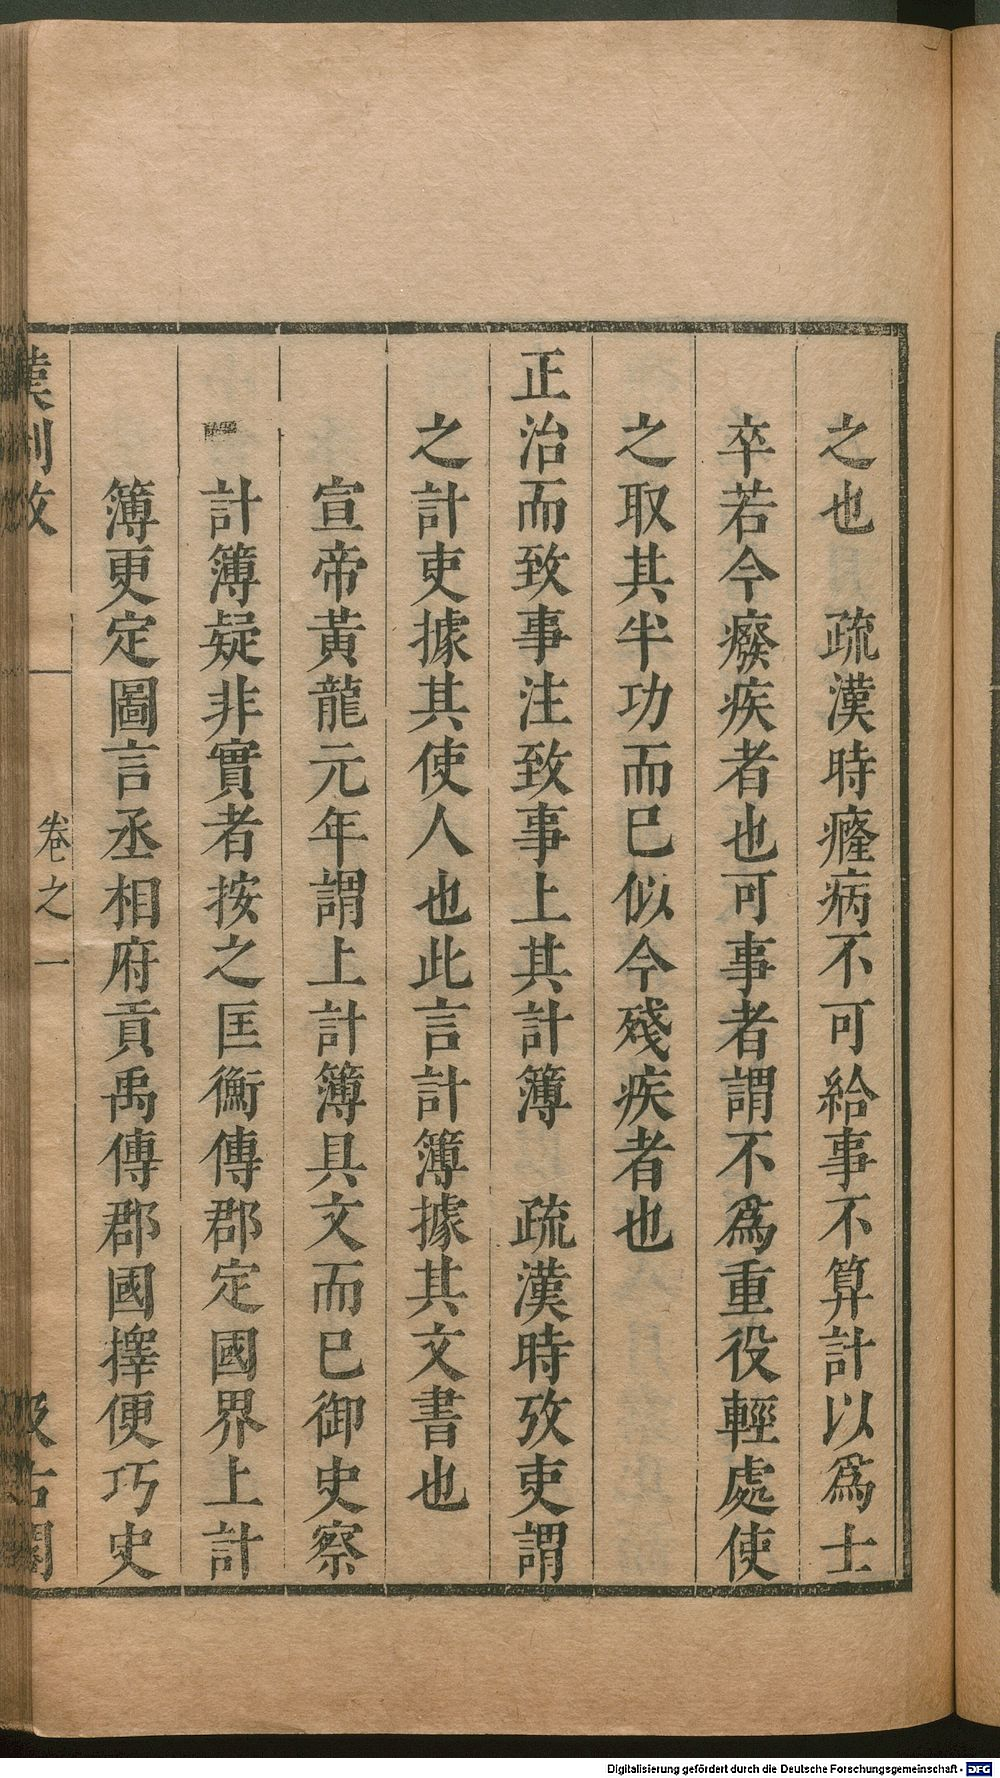 之也　疏漢時癃病不可給事不算計以爲士
卒若今癈疾者也可事者謂不爲重役輕處使
之取其半功而已似今殘疾者也
正治而致事注致事上其計簿　疏漢時攷吏謂
之計吏據其使人也此言計簿據其文書也
宣帝黃龍元年謂上計簿具文而已御史察
計簿疑非實者按之匡衡傳郡定國界上計
簿更定圖言丞相府貢禹傳郡國擇便巧史
漢制攷　卷之一　汲古閣
Digitalisierung gefördert durch die Deutsche Forschungsgemeinschaft - DFG